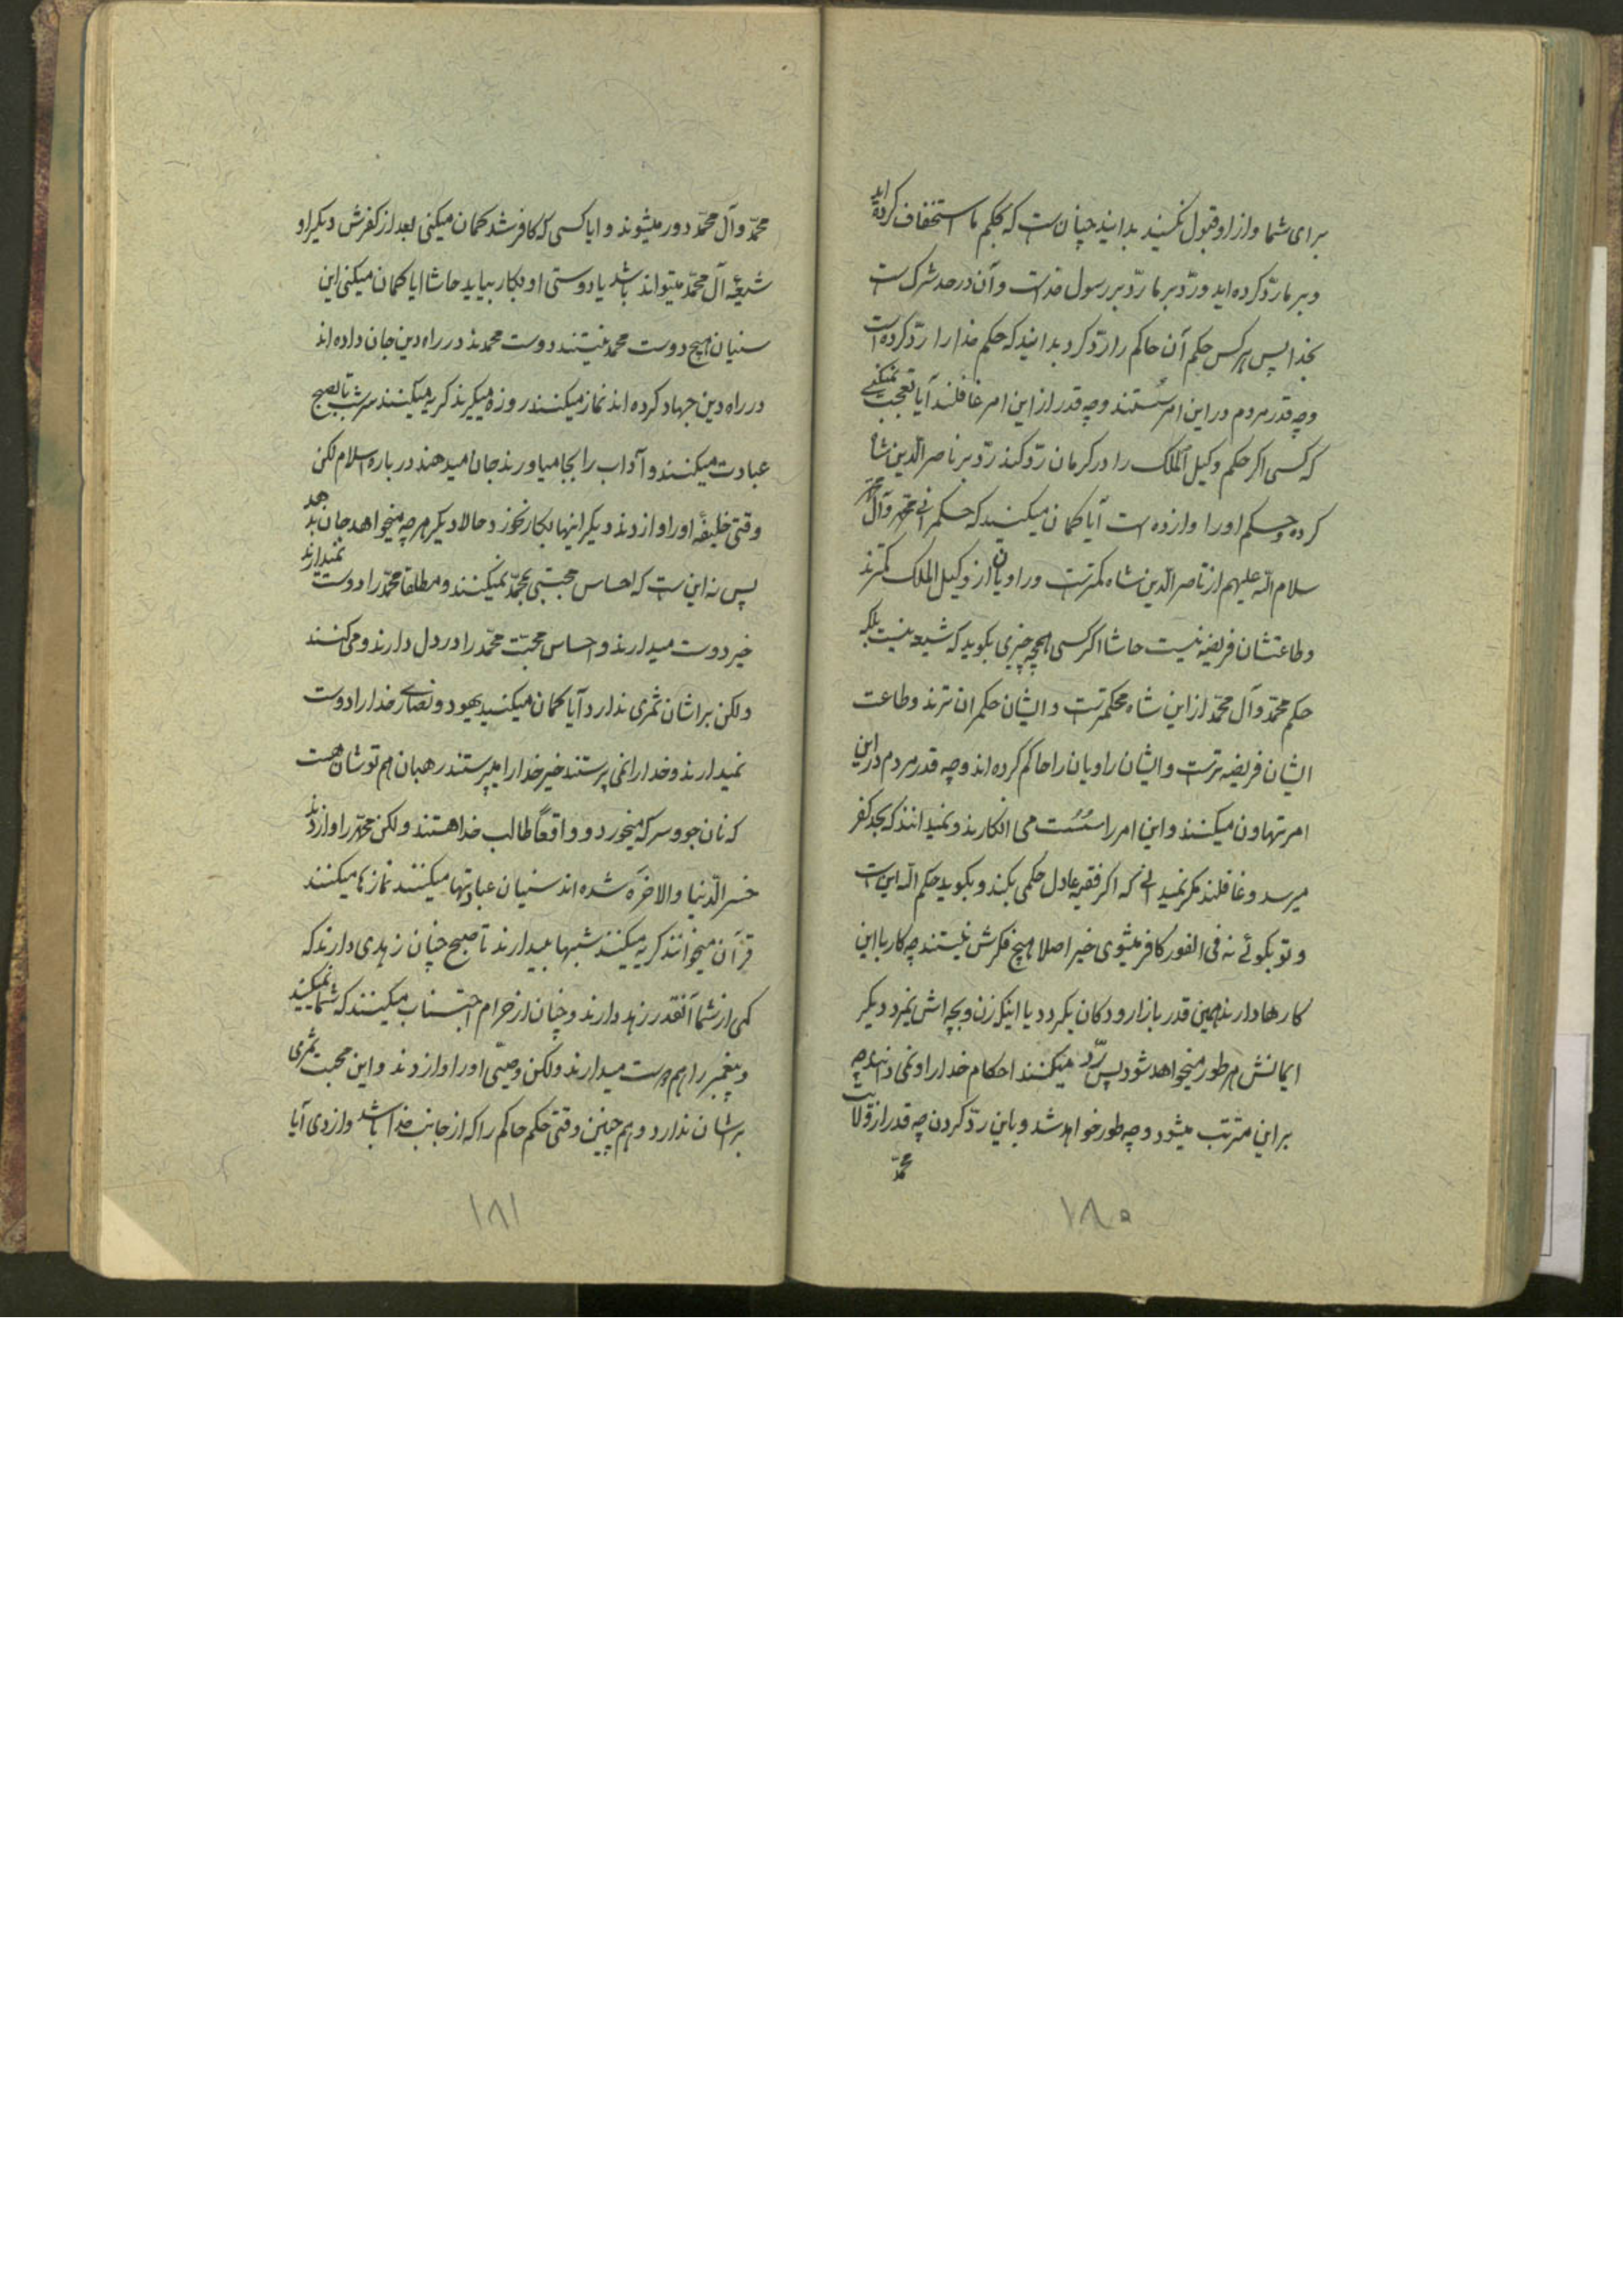 برای شما و از او قبول نکنید بدانید چنان است که بحکم ما استخفاف کرده‌اید
و بر ما ردّ کرده اید و ردّ بر ما ردّ بر رسول خداست و آن در حد شرک است
بخدا پس هر کس حکم آن حاکم را ردّ کرد بدانید که حکم خدا را ردّ کرده است
و چه قدر مردم در این امر سستند و چه قدر از این امر غافلند آیا تعجب نمیکنی
که کسی اکر حکم وکیل الملک را در کرمان ردّ کند ردّ بر ناصر الدین شاه
کرده و حکم او را وازده است آیا کمان میکنید که حکمرانی محمّد و آل محمّد
سلام الله علیهم از ناصر الدین شاه کمتر است و راویان از وکیل الملک کمترند
و طاعتشان فریضه نیست حاشا اکر کسی همچه چیزی بکوید که شیعه نیست بلکه
حکم محمّد و آل محمّد از این شاه محکمتر است و ایشان حکمران ترند و طاعت
ایشان فریضه تر است و ایشان راویان را حاکم کرده اند و چه قدر مردم در این
امر تهاون میکنند و این امر را سست می انکارند و نمیدانند که بحد کفر
میرسد و غافلند مکر نمیدانی که اکر فقیه عادل حکمی بکند و بکوید حکم الله این است
و تو بکوئی نه فی الفور کافر میشوی خیر اصلا هیچ فکرش نیستند چه کار با این
کارها دارند همین قدر بازار و دکان بکردد یا اینکه زن و بچه اش نمیرد دیکر
ایمانش هر طور میخواهد شود پس ردّ میکنند احکام خدا را و نمی دانند چه
بر این مترتب میشود و چه طور خواهد شد و باین ردّ کردن چه قدر از ولایت
محمّد
۱۸۰
محمّد و آل محمّد دور میشوند و ایا کسی که کافر شد کمان میکنی بعد از کفرش دیکر او
شیعهٔ آل محمّد میتواند باشد یا دوستی او بکار بیاید حاشا ایا کمان میکنی این
سنیان هیچ دوست محمد نیستند دوست محمدند در راه دین جان داده اند
در راه دین جهاد کرده اند نماز میکنند روزه میکیرند کریه میکنند هر شب تا بصبح
عبادت میکنند و آداب را بجا میاورند جان میدهند در باره اسلام لکن
وقتی خلیفهٔ او را وازدند دیکر اینها بکار نخورد حالا دیکر هر چه میخواهد جان بدهد
پس نه این است که احساس محبتی بمحمّد نمیکنند و مطلقا محمّد را دوست نمیدارند
خیر دوست میدارند و احساس محبّت محمّد را در دل دارند و می کنند
ولکن براشان ثمری ندارد آیا کمان میکنید یهود و نصاری خدا را دوست
نمیدارند و خدا را نمی پرستند خیر خدا را میپرستند رهبان هم توشان هست
که نان جو و سرکه میخورد و واقعاً طالب خدا هستند ولکن محمّد را وازدند
خسر الدّنیا والاخرة شده اند سنیان عبادتها میکنند نمازها میکنند
قرآن میخوانند کریه میکنند شبها بیدارند تا صبح چنان زهدی دارند که
کمی از شما آنقدر زهد دارند و چنان از حرام اجتناب میکنند که شما نمیکنید
و پیغمبر را هم دوست میدارند ولکن وصیّ او را وازدند و این محبت ثمری
برشان ندارد و هم چنین وقتی حکم حاکم را که از جانب خدا باشد وازدی آیا
۱۸۱